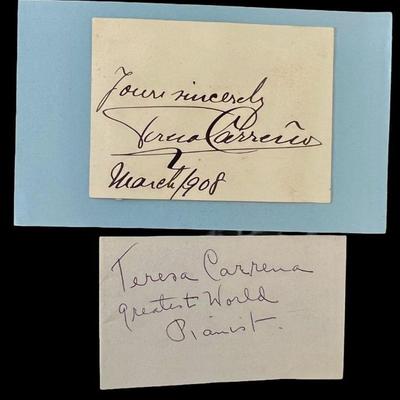 Yours sincerely
Teresa Carreño
March 1908
Teresa Carrena
greatest World
Pianist.